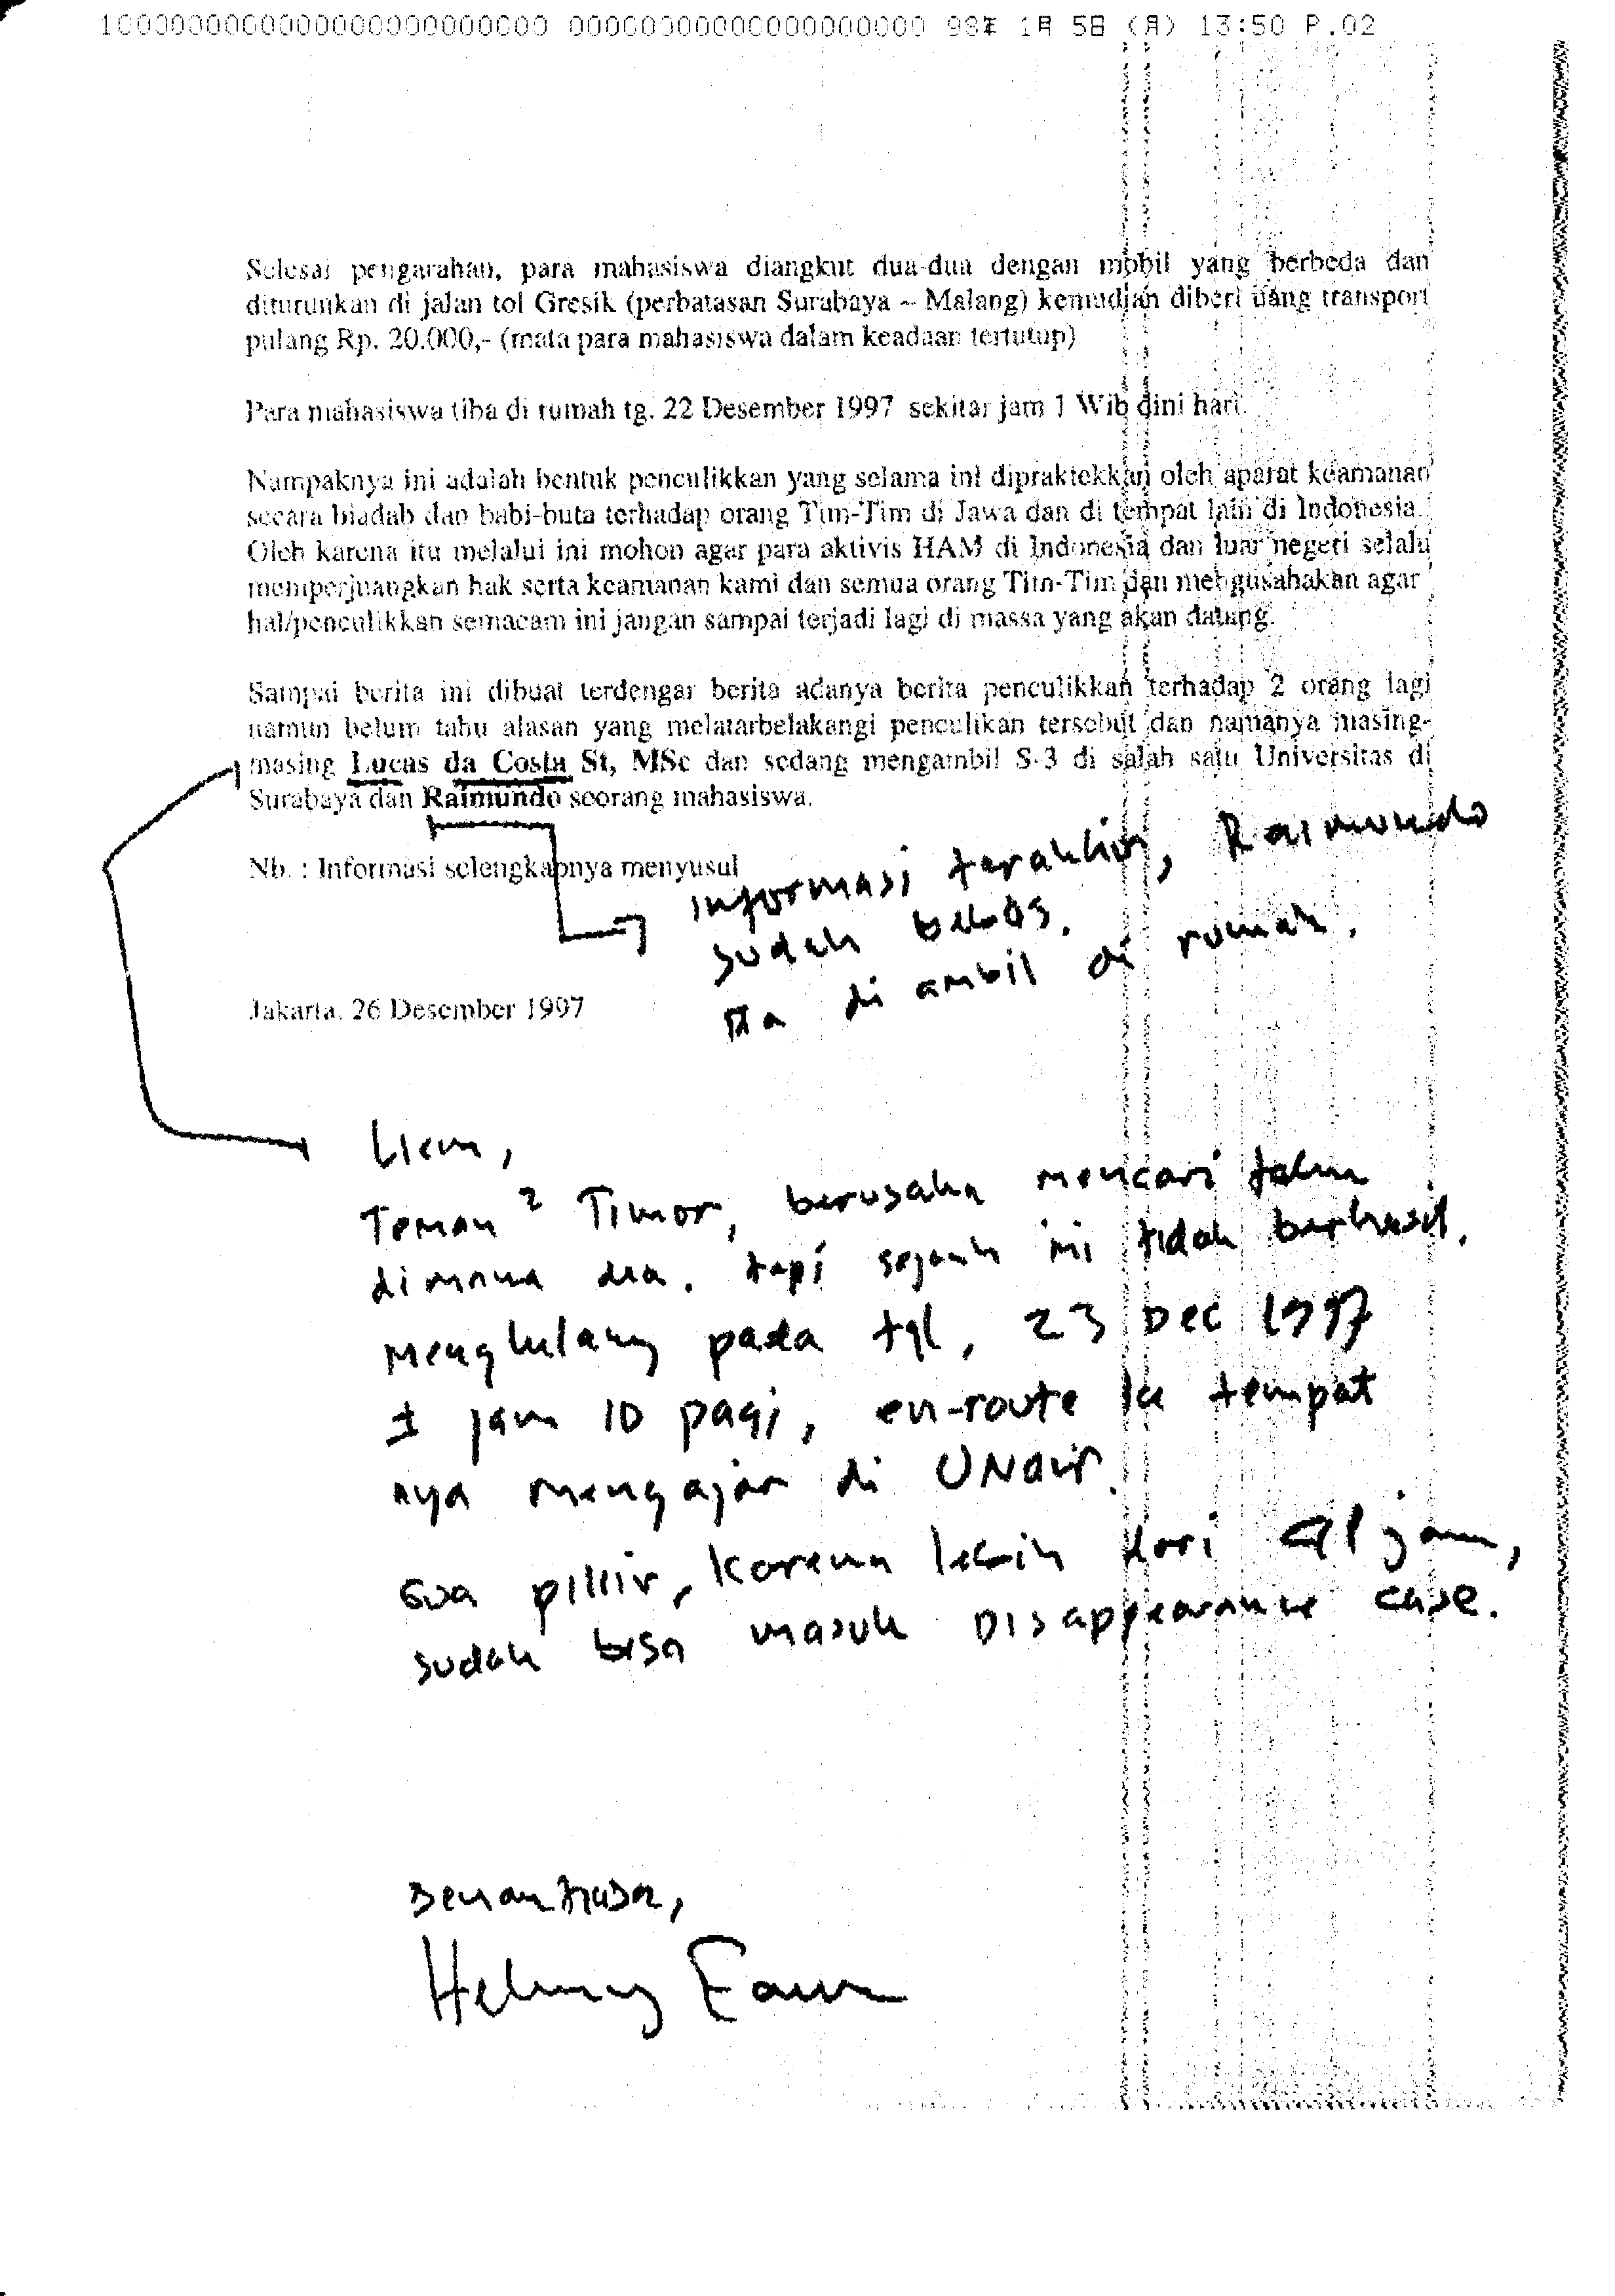 10000000000000000000000000 00000000000000000000 98年 1月 5日 (月) 13:50 P.02
Selesai pengarahan, para mahasiswa diangkut dua-dua dengan mobil yang berbeda dan
diturunkan di jalan tol Gresik (perbatasan Surabaya – Malang) kemudian diberi uang transport
pulang Rp. 20.000,- (mata para mahasiswa dalam keadaan tertutup)
Para mahasiswa tiba di rumah tg. 22 Desember 1997 sekitar jam 1 Wib dini hari.
Nampaknya ini adalah bentuk penculikkan yang selama ini dipraktekkan oleh aparat keamanan
secara biadab dan babi-buta terhadap orang Tim-Tim di Jawa dan di tempat lain di Indonesia.
Oleh karena itu melalui ini mohon agar para aktivis HAM di Indonesia dan luar negeri selalu
memperjuangkan hak serta keamanan kami dan semua orang Tim-Tim dan mengusahakan agar
hal/penculikkan semacam ini jangan sampai terjadi lagi di massa yang akan datang.
Sampai berita ini dibuat terdengar berita adanya berita penculikkan terhadap 2 orang lagi
namun belum tahu alasan yang melatarbelakangi penculikan tersebut dan namanya masing-
masing Lucas da Costa St, MSc dan sedang mengambil S-3 di salah satu Universitas di
Surabaya dan Raimundo seorang mahasiswa.
Nb. : Informasi selengkapnya menyusul
informasi terakhir, Raimundo
sudah bebas.
Dia di ambil di rumah.
Jakarta, 26 Desember 1997
Liem,
Teman² Timor, berusaha mencari tahu
dimana dia. tapi sejauh ini tidak berhasil.
Menghilang pada tgl, 23 Dec 1997
± jam 10 pagi, en-route ke tempat
nya mengajar di UNair.
Gua pikir, karena lebih dari 41 jam,
sudah bisa masuk Disappearance case.
Senantiasa,
Helmy Fauzi